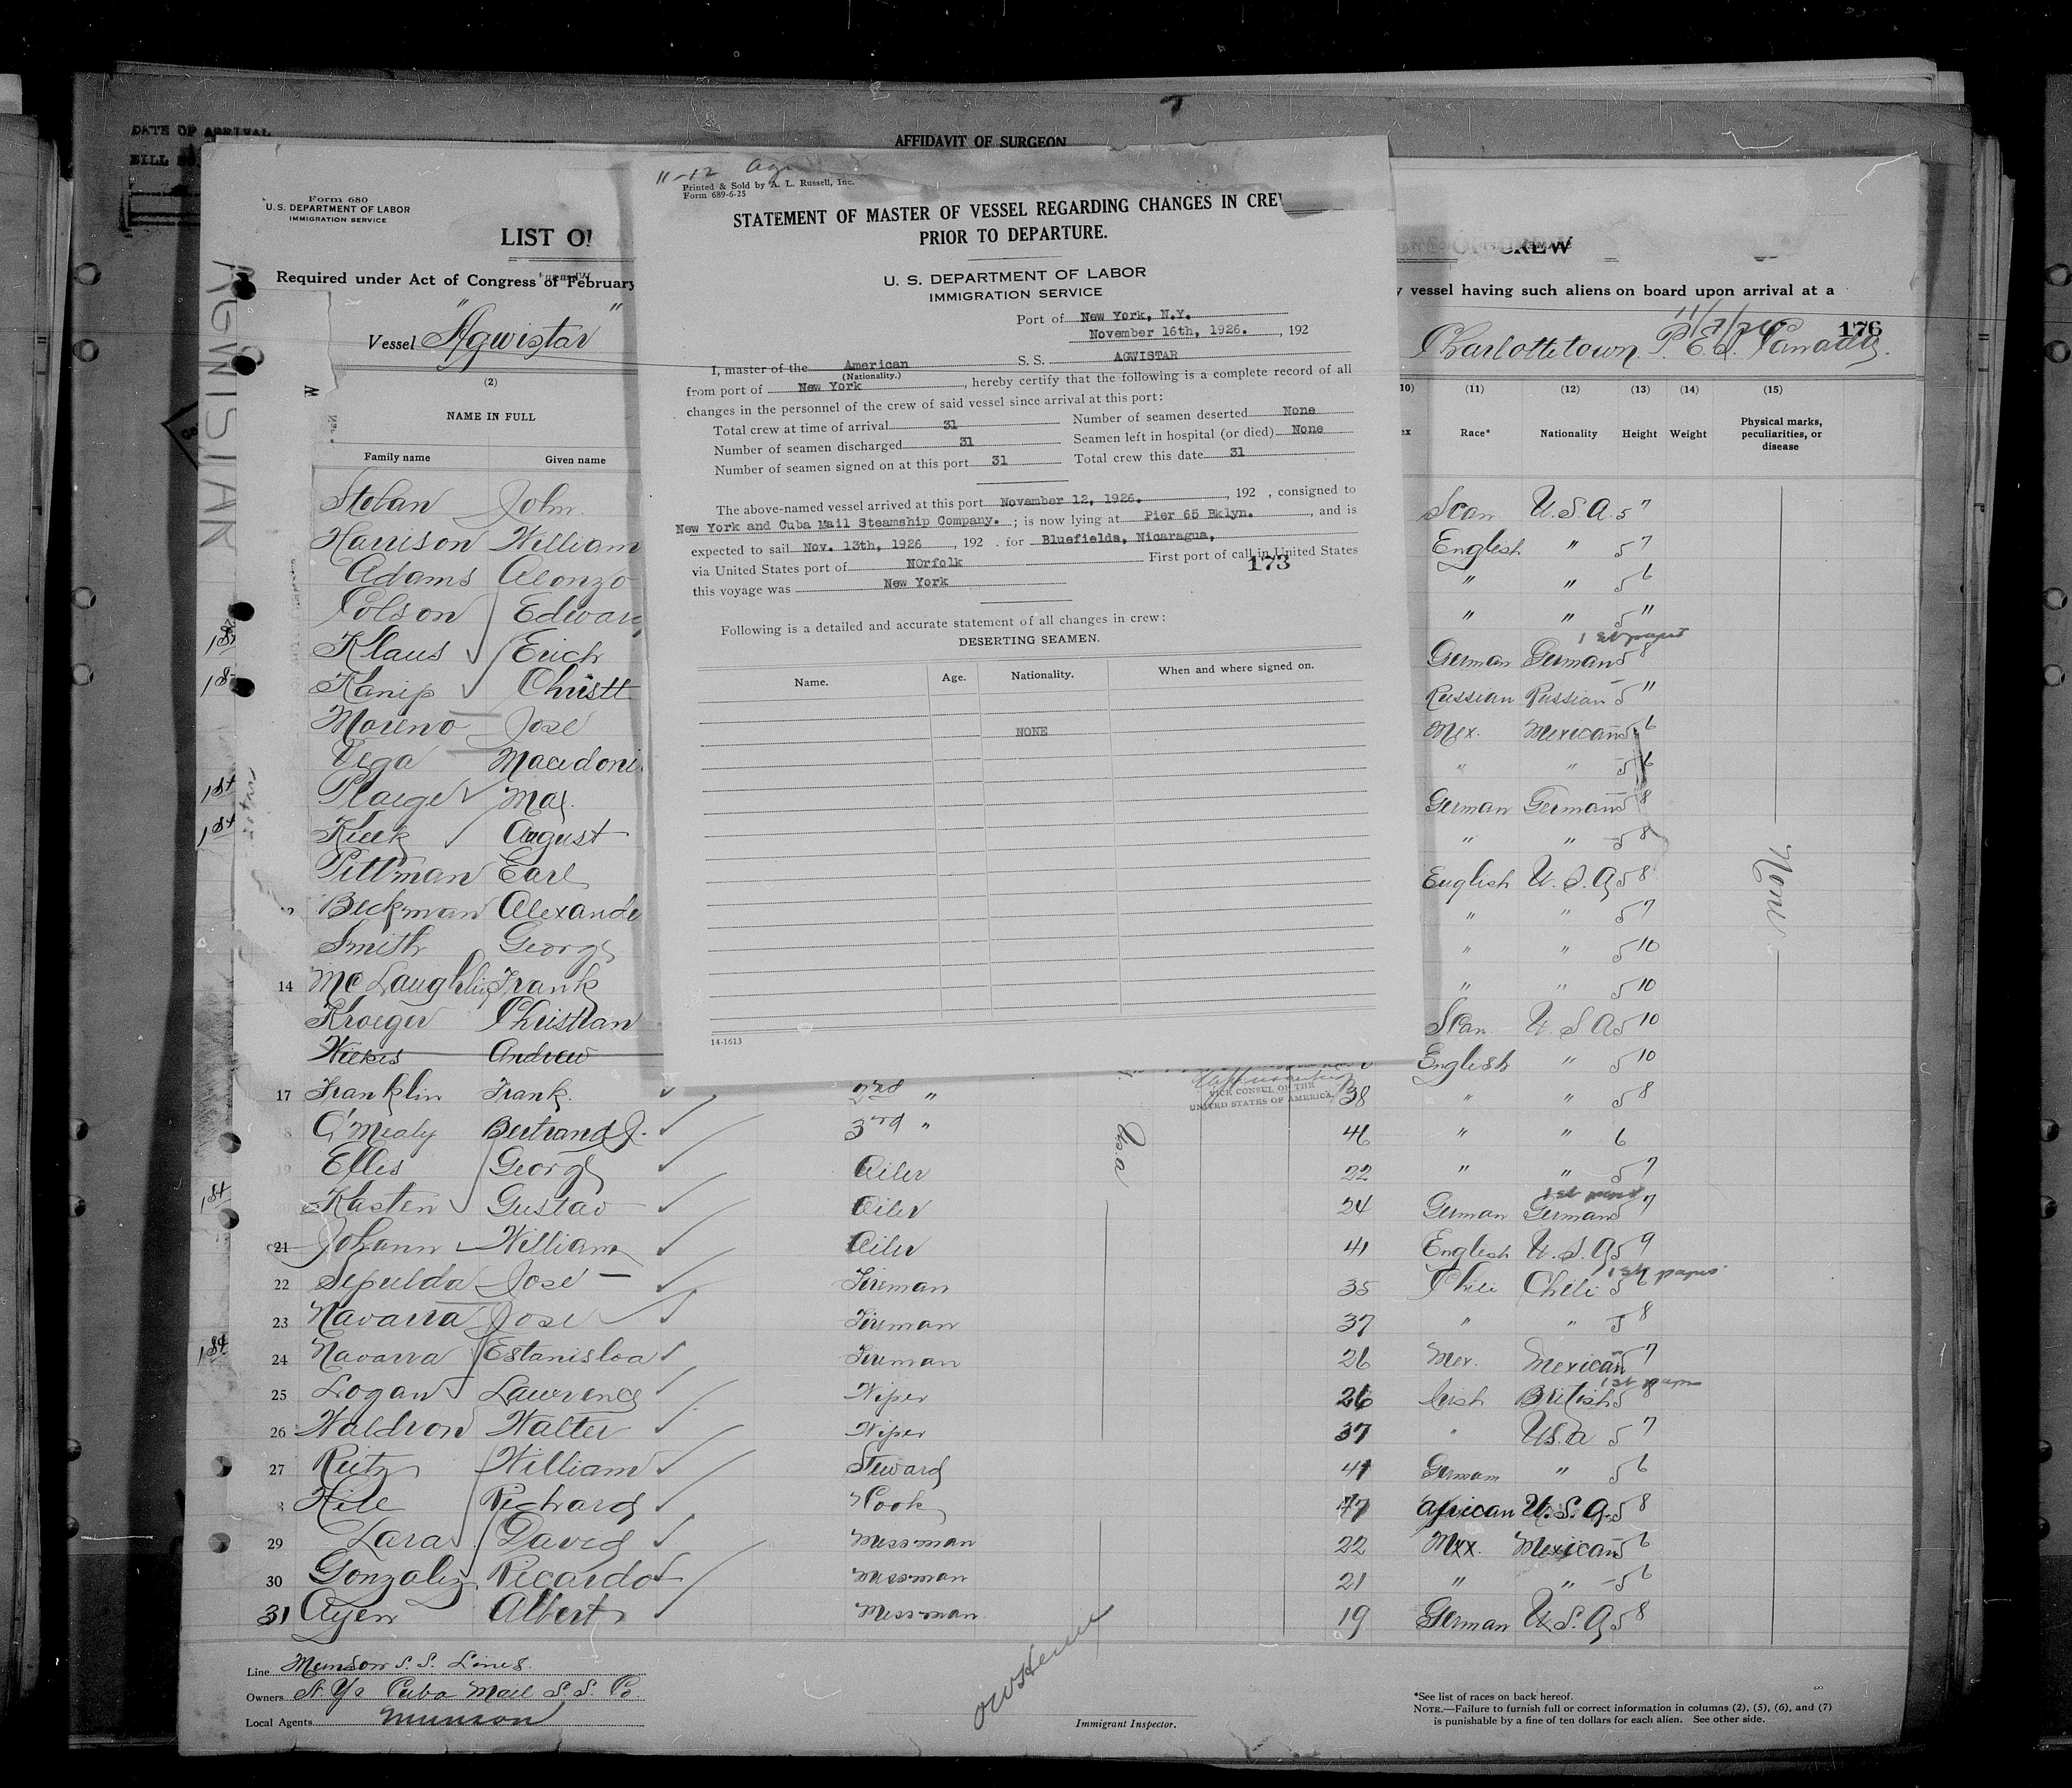 DATE OF ARRIVAL
AFFIDAVIT OF SURGEON
Form 680
U.S. DEPARTMENT OF LABOR
IMMIGRATION SERVICE
LIST OF
Required under Act of Congress of February
Vessel "Agwistar"
AGWISTAR
(2)
NAME IN FULL
Family name Given name
11-12
Printed & Sold by A. L. Russell, Inc.
Form 689-6-25
STATEMENT OF MASTER OF VESSEL REGARDING CHANGES IN CREW
PRIOR TO DEPARTURE.
U. S. DEPARTMENT OF LABOR
IMMIGRATION SERVICE
Port of New York, N.Y.
November 16th, 1926. , 192
I, master of the American S. S. AGWISTAR
(Nationality.)
from port of New York , hereby certify that the following is a complete record of all
changes in the personnel of the crew of said vessel since arrival at this port:
Total crew at time of arrival 31 Number of seamen deserted None
Number of seamen discharged 31 Seamen left in hospital (or died) None
Number of seamen signed on at this port 31 Total crew this date 31
The above-named vessel arrived at this port November 12, 1926. , 192 , consigned to
New York and Cuba Mail Steamship Company. ; is now lying at Pier 65 Bklyn. , and is
expected to sail Nov. 13th, 1926 , 192 . for Bluefields, Nicaragua,
via United States port of NOrfolk First port of call in United States
this voyage was New York 173
Following is a detailed and accurate statement of all changes in crew:
DESERTING SEAMEN.
Name. Age. Nationality. When and where signed on.
NONE
14-1613
OF CREW
vessel having such aliens on board upon arrival at a
Charlottetown P.E.I. Canada. 176
10) (11) (12) (13) (14) (15)
ex Race* Nationality Height Weight Physical marks, peculiarities, or disease
Stoban John Scan U.S.A. 5 7
Harrison William English " 5 7
Adams Alonzo " " 5 6
Colson Edward " " 5 11
1st Klaus Erich German German 5 8 1st papers
Kanip Christ Russian Russian 5 11
Moreno Jose Mex. Mexican 5 6
Vega Macedoni " " 5 6
1st Plaeger Max German German 5 8
1st Kieck August " " 5 8
Pittman Earl English U.S.A 5 8
Beckman Alexande " " 5 7
Smith George " " 5 10
14 McLaughlin Frank " " 5 10
Kroeger Christian Scan U.S.A 5 10
Wilkes Andrew English " 5 10
VICE CONSUL OF THE
UNITED STATES OF AMERICA
17 Franklin Frank 2nd " 38 " " 5 8
O'Mealy Bertrand J. 3rd " 46 " " 6
Ellis George Oiler 22 " " 5 7
1st Kasten Gustav Oiler 24 German German 5 7
21 Johann William Oiler 41 English U.S.A 5 9
22 Sepulda Jose Fireman 35 Chili Chili 5 1st papers
23 Navarra Jose Fireman 37 " " 5 8
1st 24 Navarra Estanisloa Fireman 26 Mex. Mexican 5 7
25 Logan Lawrence Wiper 26 Irish British 5 8
26 Waldron Walter Wiper 37 " U.S.A 5 7
27 Reitz William Steward 41 German " 5 6
Hill Richard Cook 47 African U.S.A 5 8
29 Lara David Messman 22 Mex. Mexican 5 6
30 Gonzalez Ricardo Messman 21 " " 5 6
31 Ayen Albert Messman 19 German U.S.A 5 8
None
Line Munson S.S. Lines.
Owners N.Y. Cuba Mail S.S. Co.
Local Agents Munson
Immigrant Inspector.
*See list of races on back hereof.
NOTE.—Failure to furnish full or correct information in columns (2), (5), (6), and (7)
is punishable by a fine of ten dollars for each alien. See other side.